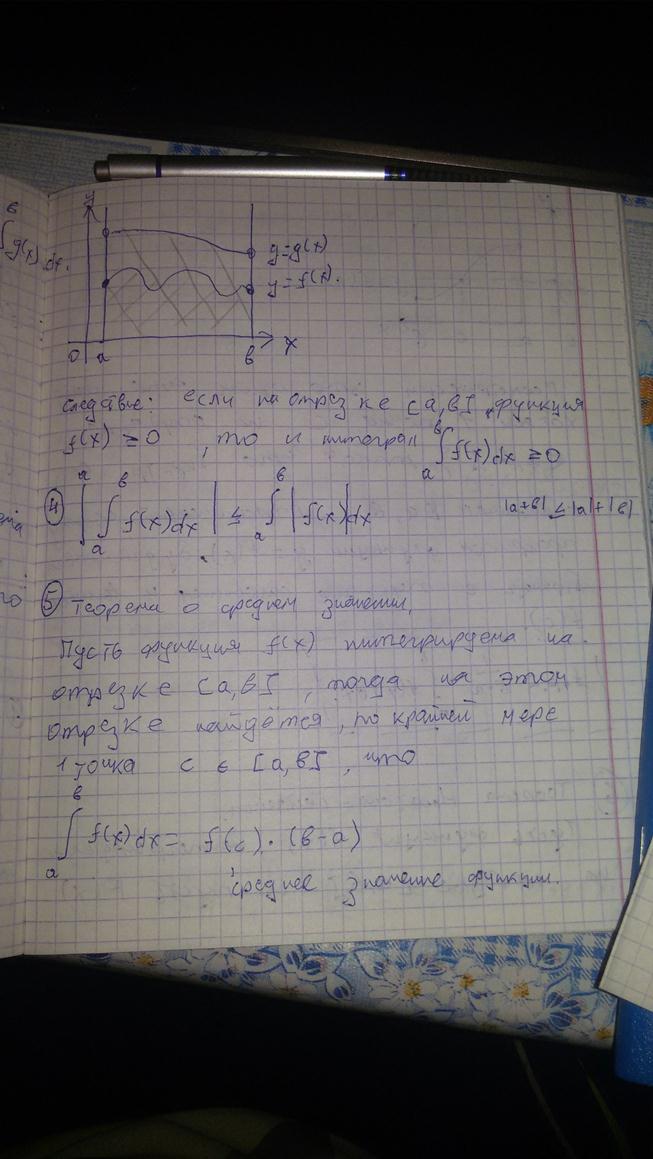 в
∫ g(x) dx.
y
y=g(x)
y=f(x).
0 a в x
следствие: если на отрезке [a,в] функция
f(x) ≥ 0 , то и интеграл ∫ₐᵇ f(x)dx ≥ 0
④ |∫ₐᵇ f(x)dx| ≤ ∫ₐᵇ |f(x)|dx |a+в| ≤ |a|+|в|
⑤ Теорема о среднем значении.
Пусть функция f(x) интегрируема на
отрезке [a,в] , тогда на этом
отрезке найдётся, по крайней мере
1 точка c ∈ [a,в] , что
∫ₐᵇ f(x)dx = f(c) · (в-a)
среднее значение функции.